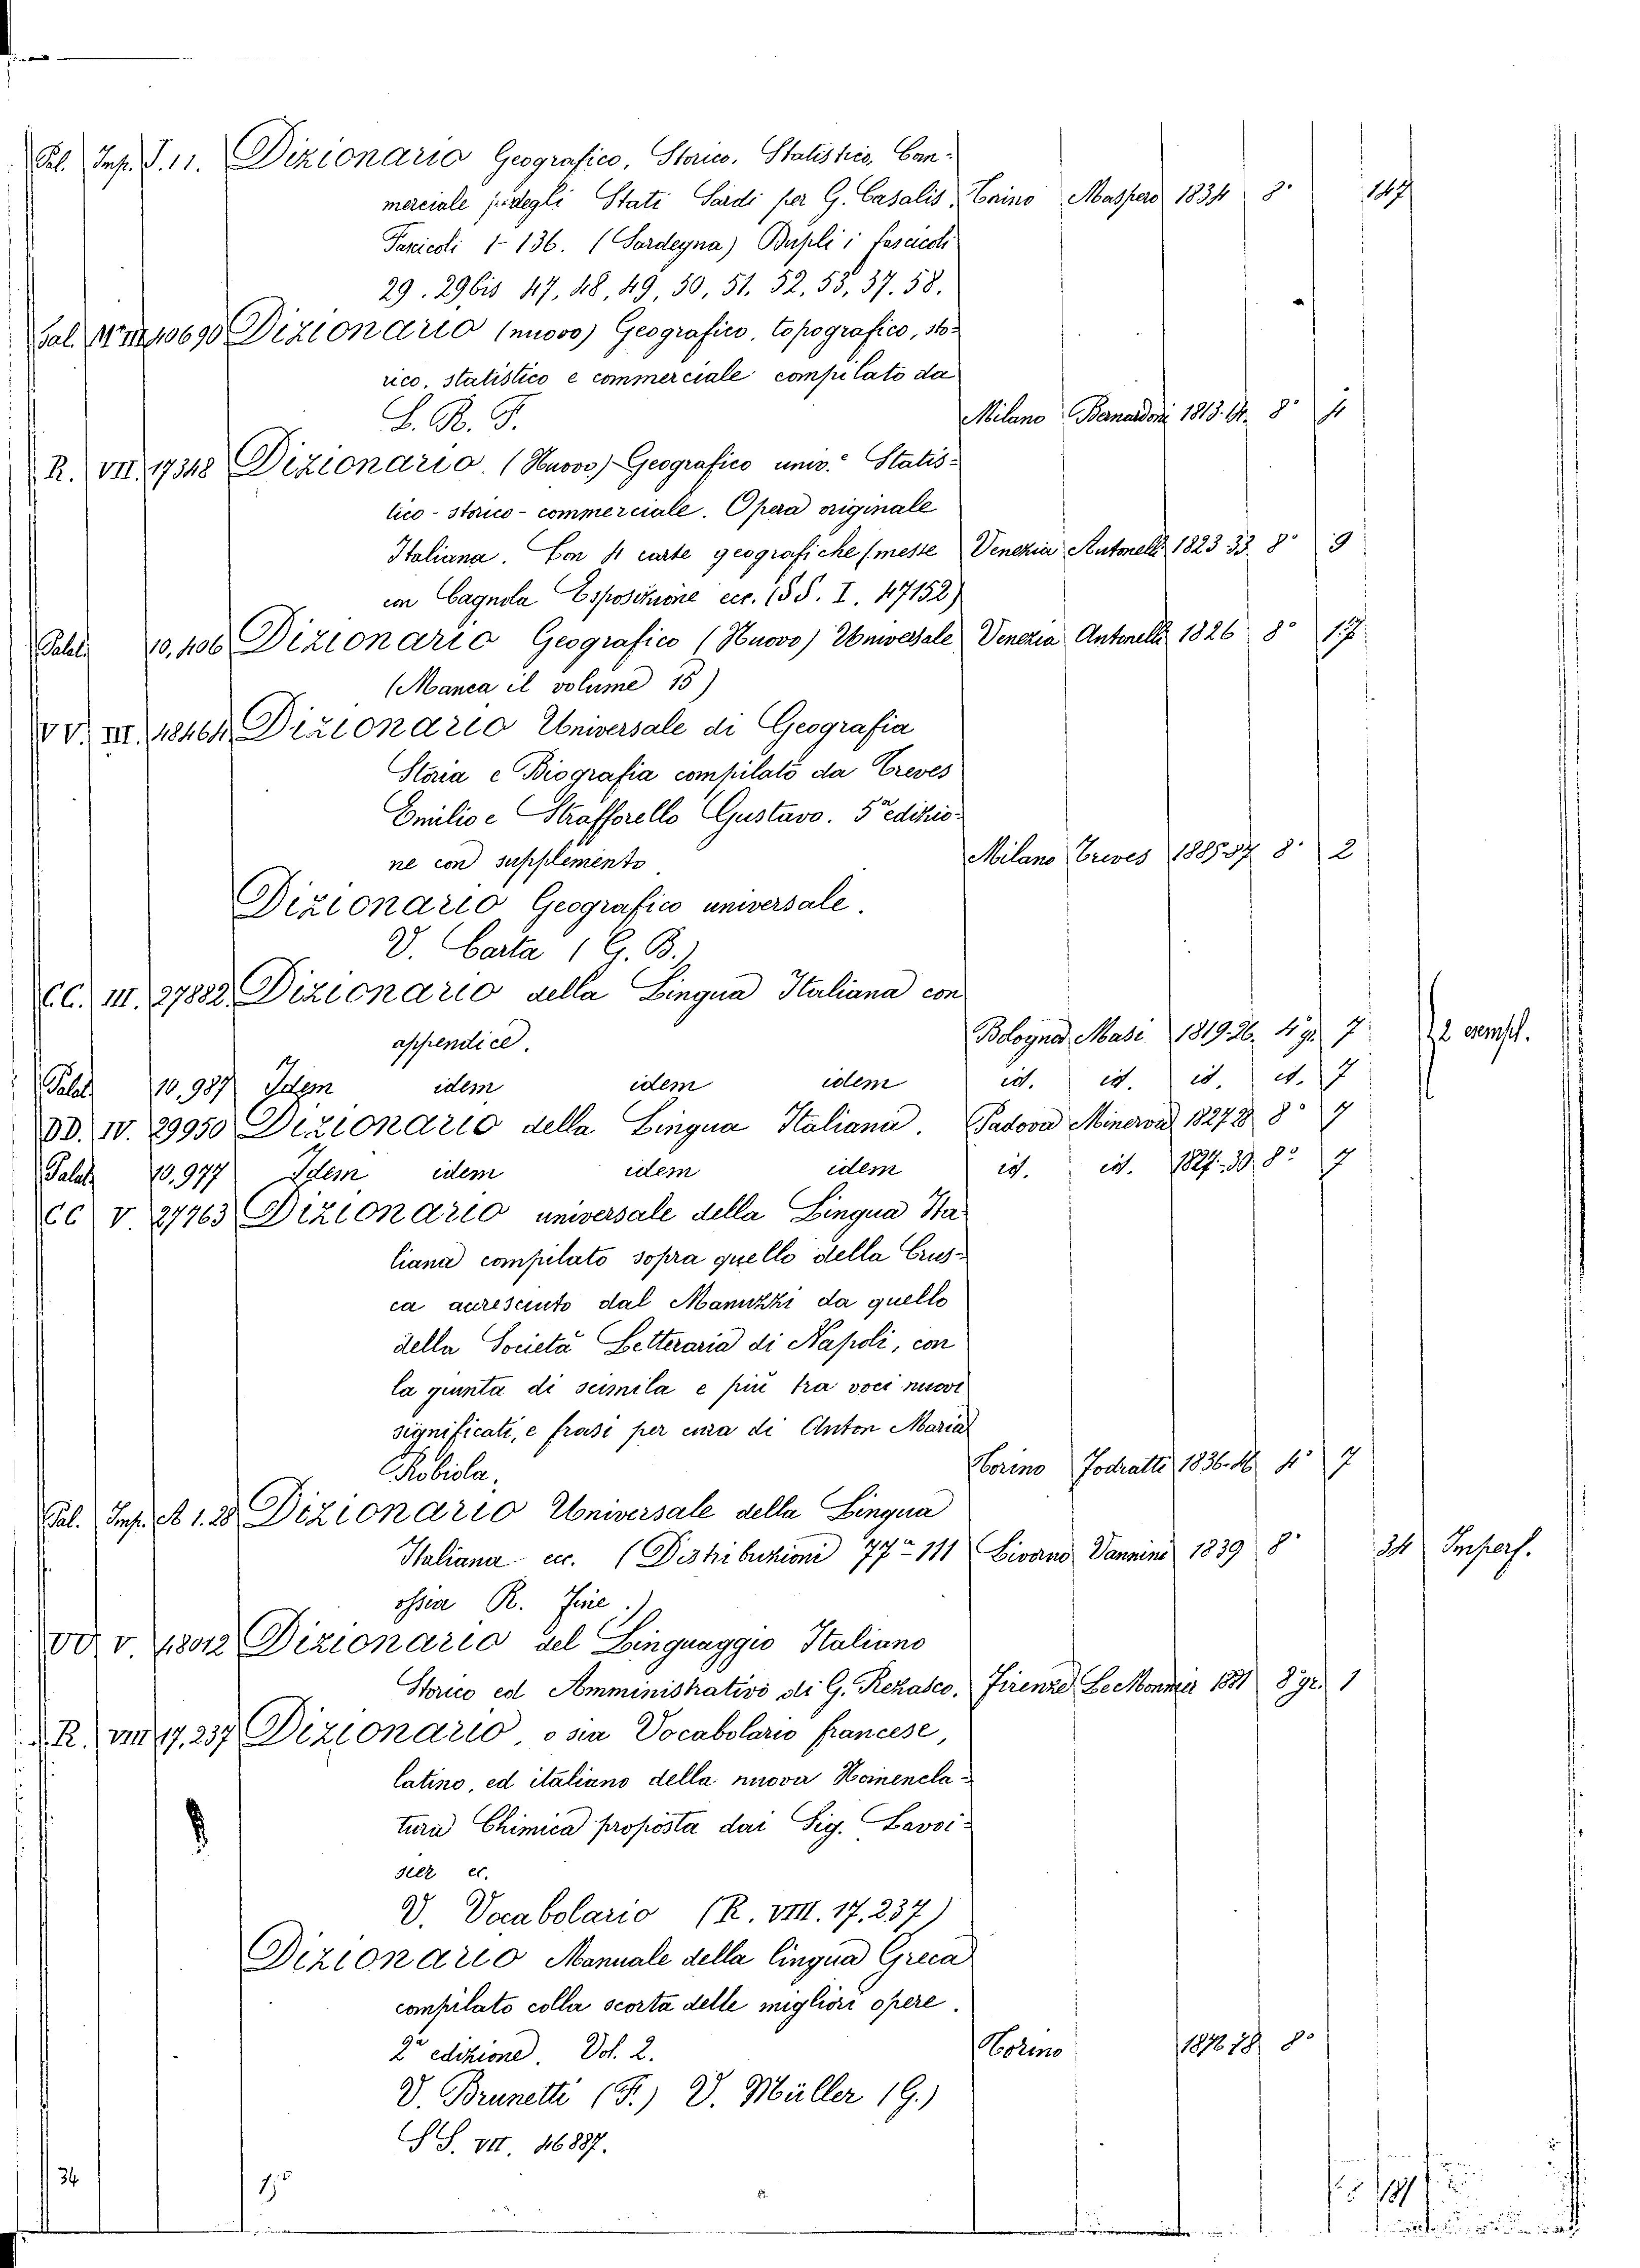 Pal. Imp. T. 11. Dizionario Geografico, Storico, Statistico, Com-
merciale degli Stati Sardi per G. Casalis Torino Maspero 1834 8° 147
Fascicoli 1-136. (Sardegna) Dupli i fascicoli
29. 29 bis 47. 48, 49, 50, 51. 52. 53, 37. 58.
Pal. 10690 Dizionario (nuovo) Geografico, topografico, sto-
rico, statistico e commerciale compilato da
L. R. F. Milano Bernardoni 1813. 14. 8° 4
R. VII. 17348 Dizionario (Nuovo) Geografico univ.e Statis-
tico - storico - commerciale. Opera originale
Italiana. Con 4 carte geografiche (messe Venezia Antonelli 1823 33 8° 9
con Cagnola Esposizione ecc. (SS. I. 47152)
Palat. 10,406 Dizionario Geografico (Nuovo) Universale Venezia Antonelli 1826 8° 17
(Manca il volume 15)
VV. III. 48464 Dizionario Universale di Geografia
Storia e Biografia compilato da Treves
Emilio e Strafforello Gustavo. 5a edizio-
ne con supplemento Milano Treves 1885 87 8° 2
Dizionario Geografico universale.
V. Carta (G. B.)
CC. III. 27882 Dizionario della Lingua Italiana con
appendice. Bologna Masi 1819 26. 4° gr. 7 2 esempl.
Palat. 10,987 Idem idem idem idem id. id. id. id. 7
DD. IV. 29950 Dizionario della Lingua Italiana. Padova Minerva 1827 28 8° 7
Palat. 10,977 Idem idem idem idem id. id. 1827-30. 8° 7
CC V. 27763 Dizionario universale della Lingua Ita-
liana compilato sopra quello della Crus-
ca accresciuto dal Manuzzi da quello
della Società Letteraria di Napoli, con
la giunta di seimila e più tra voci nuove
significati, e frasi per cura di Anton Maria
Robiola. Torino Fodratti 1836. 46 4° 7
Pal. Imp. A 1. 28 Dizionario Universale della Lingua
Italiana ecc. (Distribuzioni 77a - 111 Livorno Vannini 1839 8° 34 Imperf.
ossia R. Fine.)
VV V. 48012 Dizionario del Linguaggio Italiano
Storico ed Amministrativo di G. Rezasco. Firenze Le Monnier 1881 8° gr. 1
R. VIII 17,237 Dizionario, o sia Vocabolario francese,
latino, ed italiano della nuova Nomencla-
tura Chimica proposta dai Sig. Lavoi-
sier ec.
V. Vocabolario (R. VIII. 17,237)
Dizionario Manuale della lingua Greca
compilato colla scorta delle migliori opere.
2a edizione. Vol. 2. Torino 8°
V. Brunetti (F.) V. Müller (G.)
SS. VII. 46887.
34